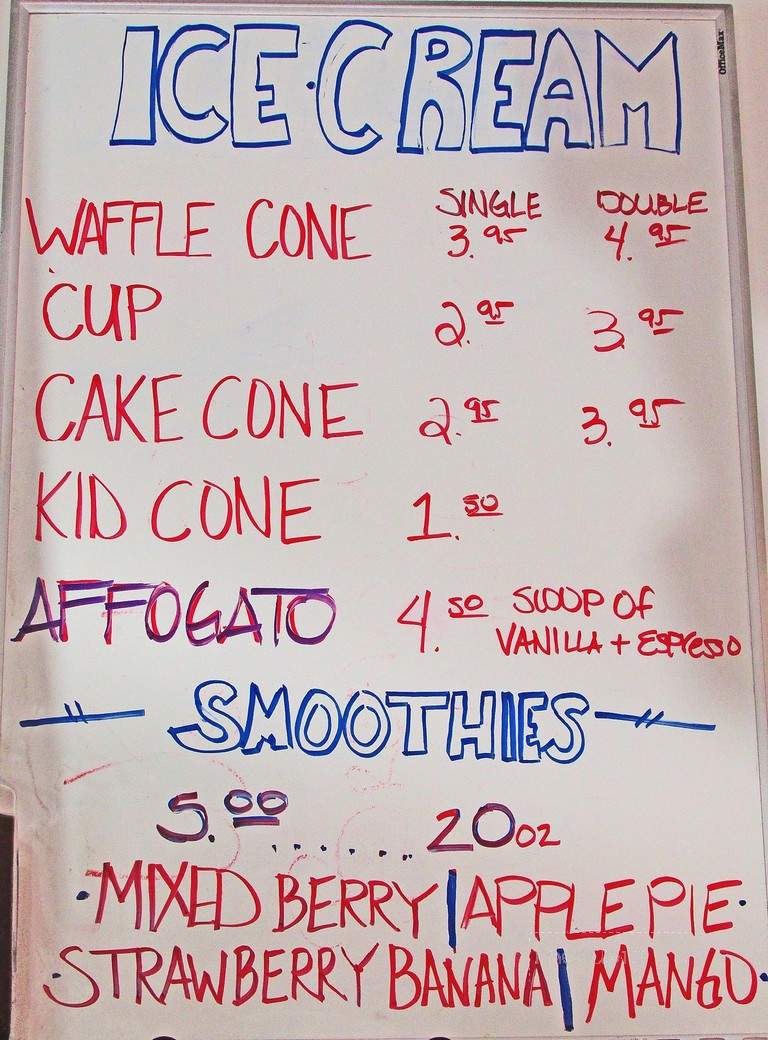 OfficeMax
ICE·CREAM
SINGLE DOUBLE
WAFFLE CONE 3.95 4.95
CUP 2.95 3.95
CAKE CONE 2.95 3.95
KID CONE 1.50
AFFOGATO 4.50 SCOOP OF
VANILLA + ESPRESSO
SMOOTHIES
5.00 ....... 20oz
·MIXED BERRY | APPLE PIE·
·STRAWBERRY BANANA | MANGO·